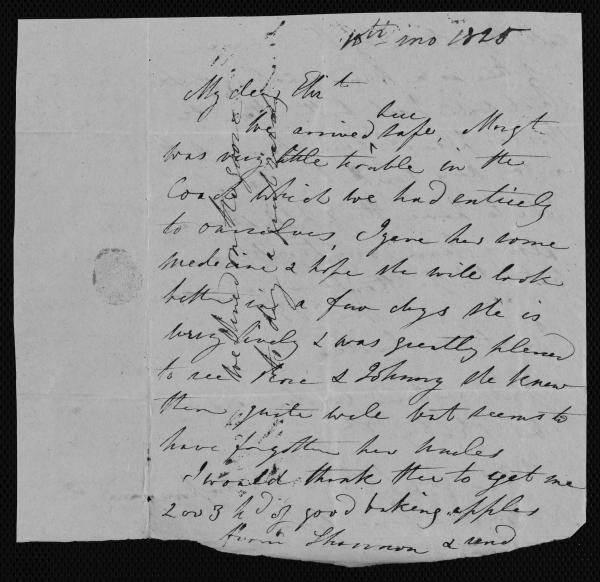 10th mo 1825
My dear Elizth
We arrived here safe, Margt
was very little trouble in the
Coach which we had entirely
to ourselves, I gave her some
medicine & hope she will look
better in a few days she is
very lively & was greatly pleased
to see & Johnny she knew
them quite well but seems to
have forgotten her uncles
I would thank thee to get me
2 or 3 hd of good baking apples
from Shannon & send
we dined on the goose
to day